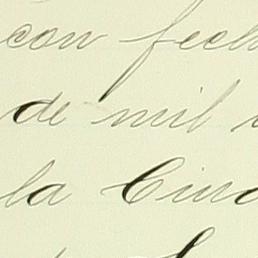 con fech
de mil
la Ciud